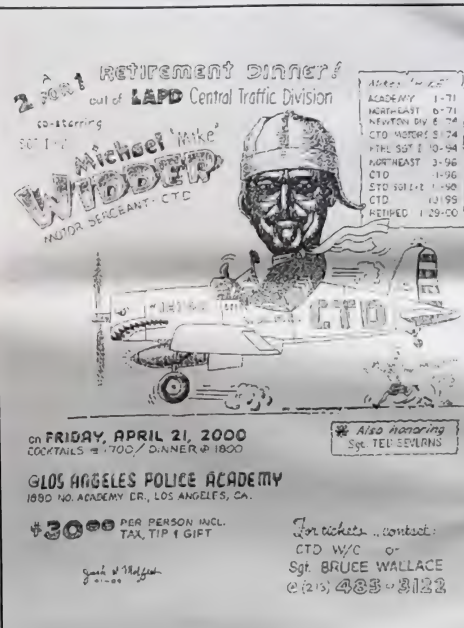 A
2 FOR 1 RETIREMENT DINNER!
out of LAPD Central Traffic Division
co-starring
SGT
Michael "Mike"
WIDDER
MOTOR SERGEANT - CTD
ACADEMY 1-71
NORTHEAST 6-71
NEWTON DIV 8-74
CTD MOTORS 5-74
SGT I 10-94
NORTHEAST 3-96
CTD -96
CTD SGT -98
CTD
RETIRED 1-29-00
CTD
on FRIDAY, APRIL 21, 2000
COCKTAILS @ 1700 / DINNER @ 1800
* Also honoring
Sgt. TED SEVERNS
@LOS ANGELES POLICE ACADEMY
1880 NO. ACADEMY DR., LOS ANGELES, CA.
$30.00 PER PERSON INCL.
TAX, TIP & GIFT
For tickets, contact:
CTD W/C or
Sgt. BRUCE WALLACE
@ (213) 485-3122